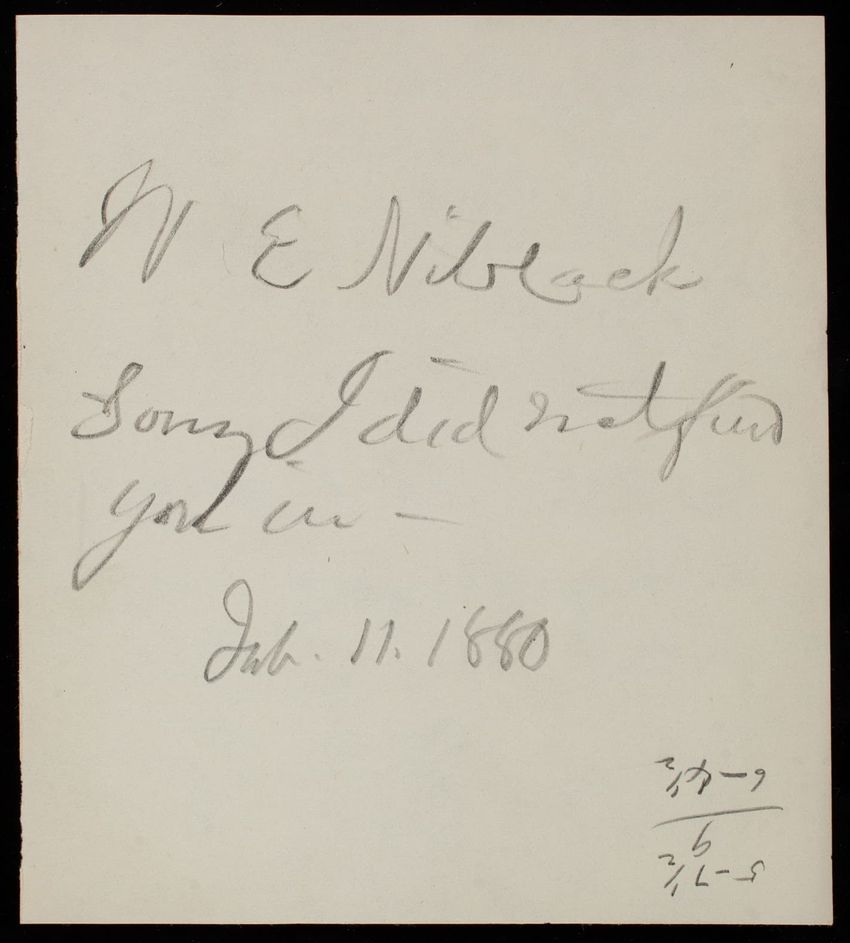 W E Niblack
Sorry I did not find
you in —
Feb. 11. 1880
5-7 1/2
9
6-4 1/2